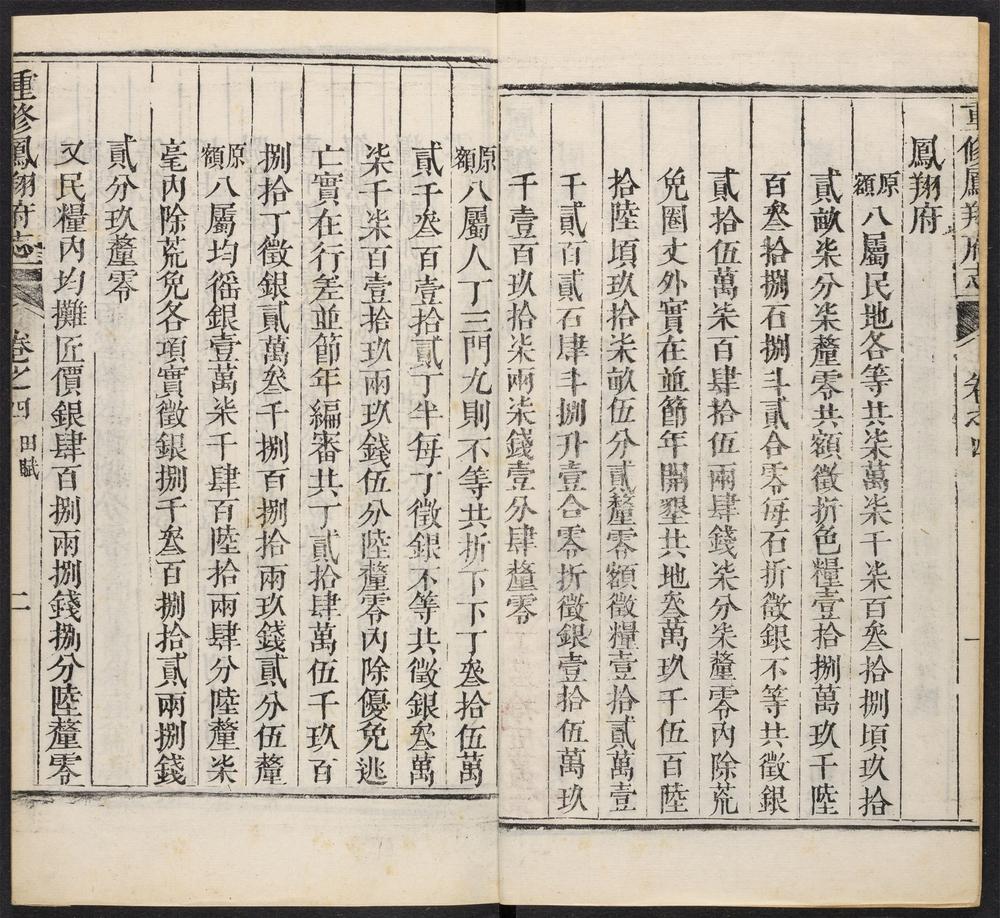 重修鳳翔府志 卷之四 一
鳳翔府
原額八屬民地各等共柒萬柒千柒百叁拾捌頃玖拾
貳畝柒分柒釐零共額徵折色糧壹拾捌萬玖千陸
百叁拾捌石捌斗貳合零每石折徵銀不等共徵銀
貳拾伍萬柒百肆拾伍兩肆錢柒分柒釐零內除荒
免圈丈外實在並節年開墾共地叁萬玖千伍百陸
拾陸頃玖拾柒畝伍分貳釐零額徵糧壹拾貳萬壹
千貳百貳石肆斗捌升壹合零折徵銀壹拾伍萬玖
千壹百玖拾柒兩柒錢壹分肆釐零
原額八屬人丁三門九則不等共折下下丁叁拾伍萬
貳千叁百壹拾貳丁半每丁徵銀不等共徵銀叁萬
柒千柒百壹拾玖兩玖錢伍分陸釐零內除優免逃
亡實在行差並節年編審共丁貳拾肆萬伍千玖百
捌拾丁徵銀貳萬叁千捌百捌拾兩玖錢貳分伍釐
原額八屬均徭銀壹萬柒千肆百陸拾兩肆分陸釐柒
毫內除荒免各項實徵銀捌千叁百捌拾貳兩捌錢
貳分玖釐零
又民糧內均攤匠價銀肆百捌兩捌錢捌分陸釐零
重修鳳翔府志 卷之四 田賦 二